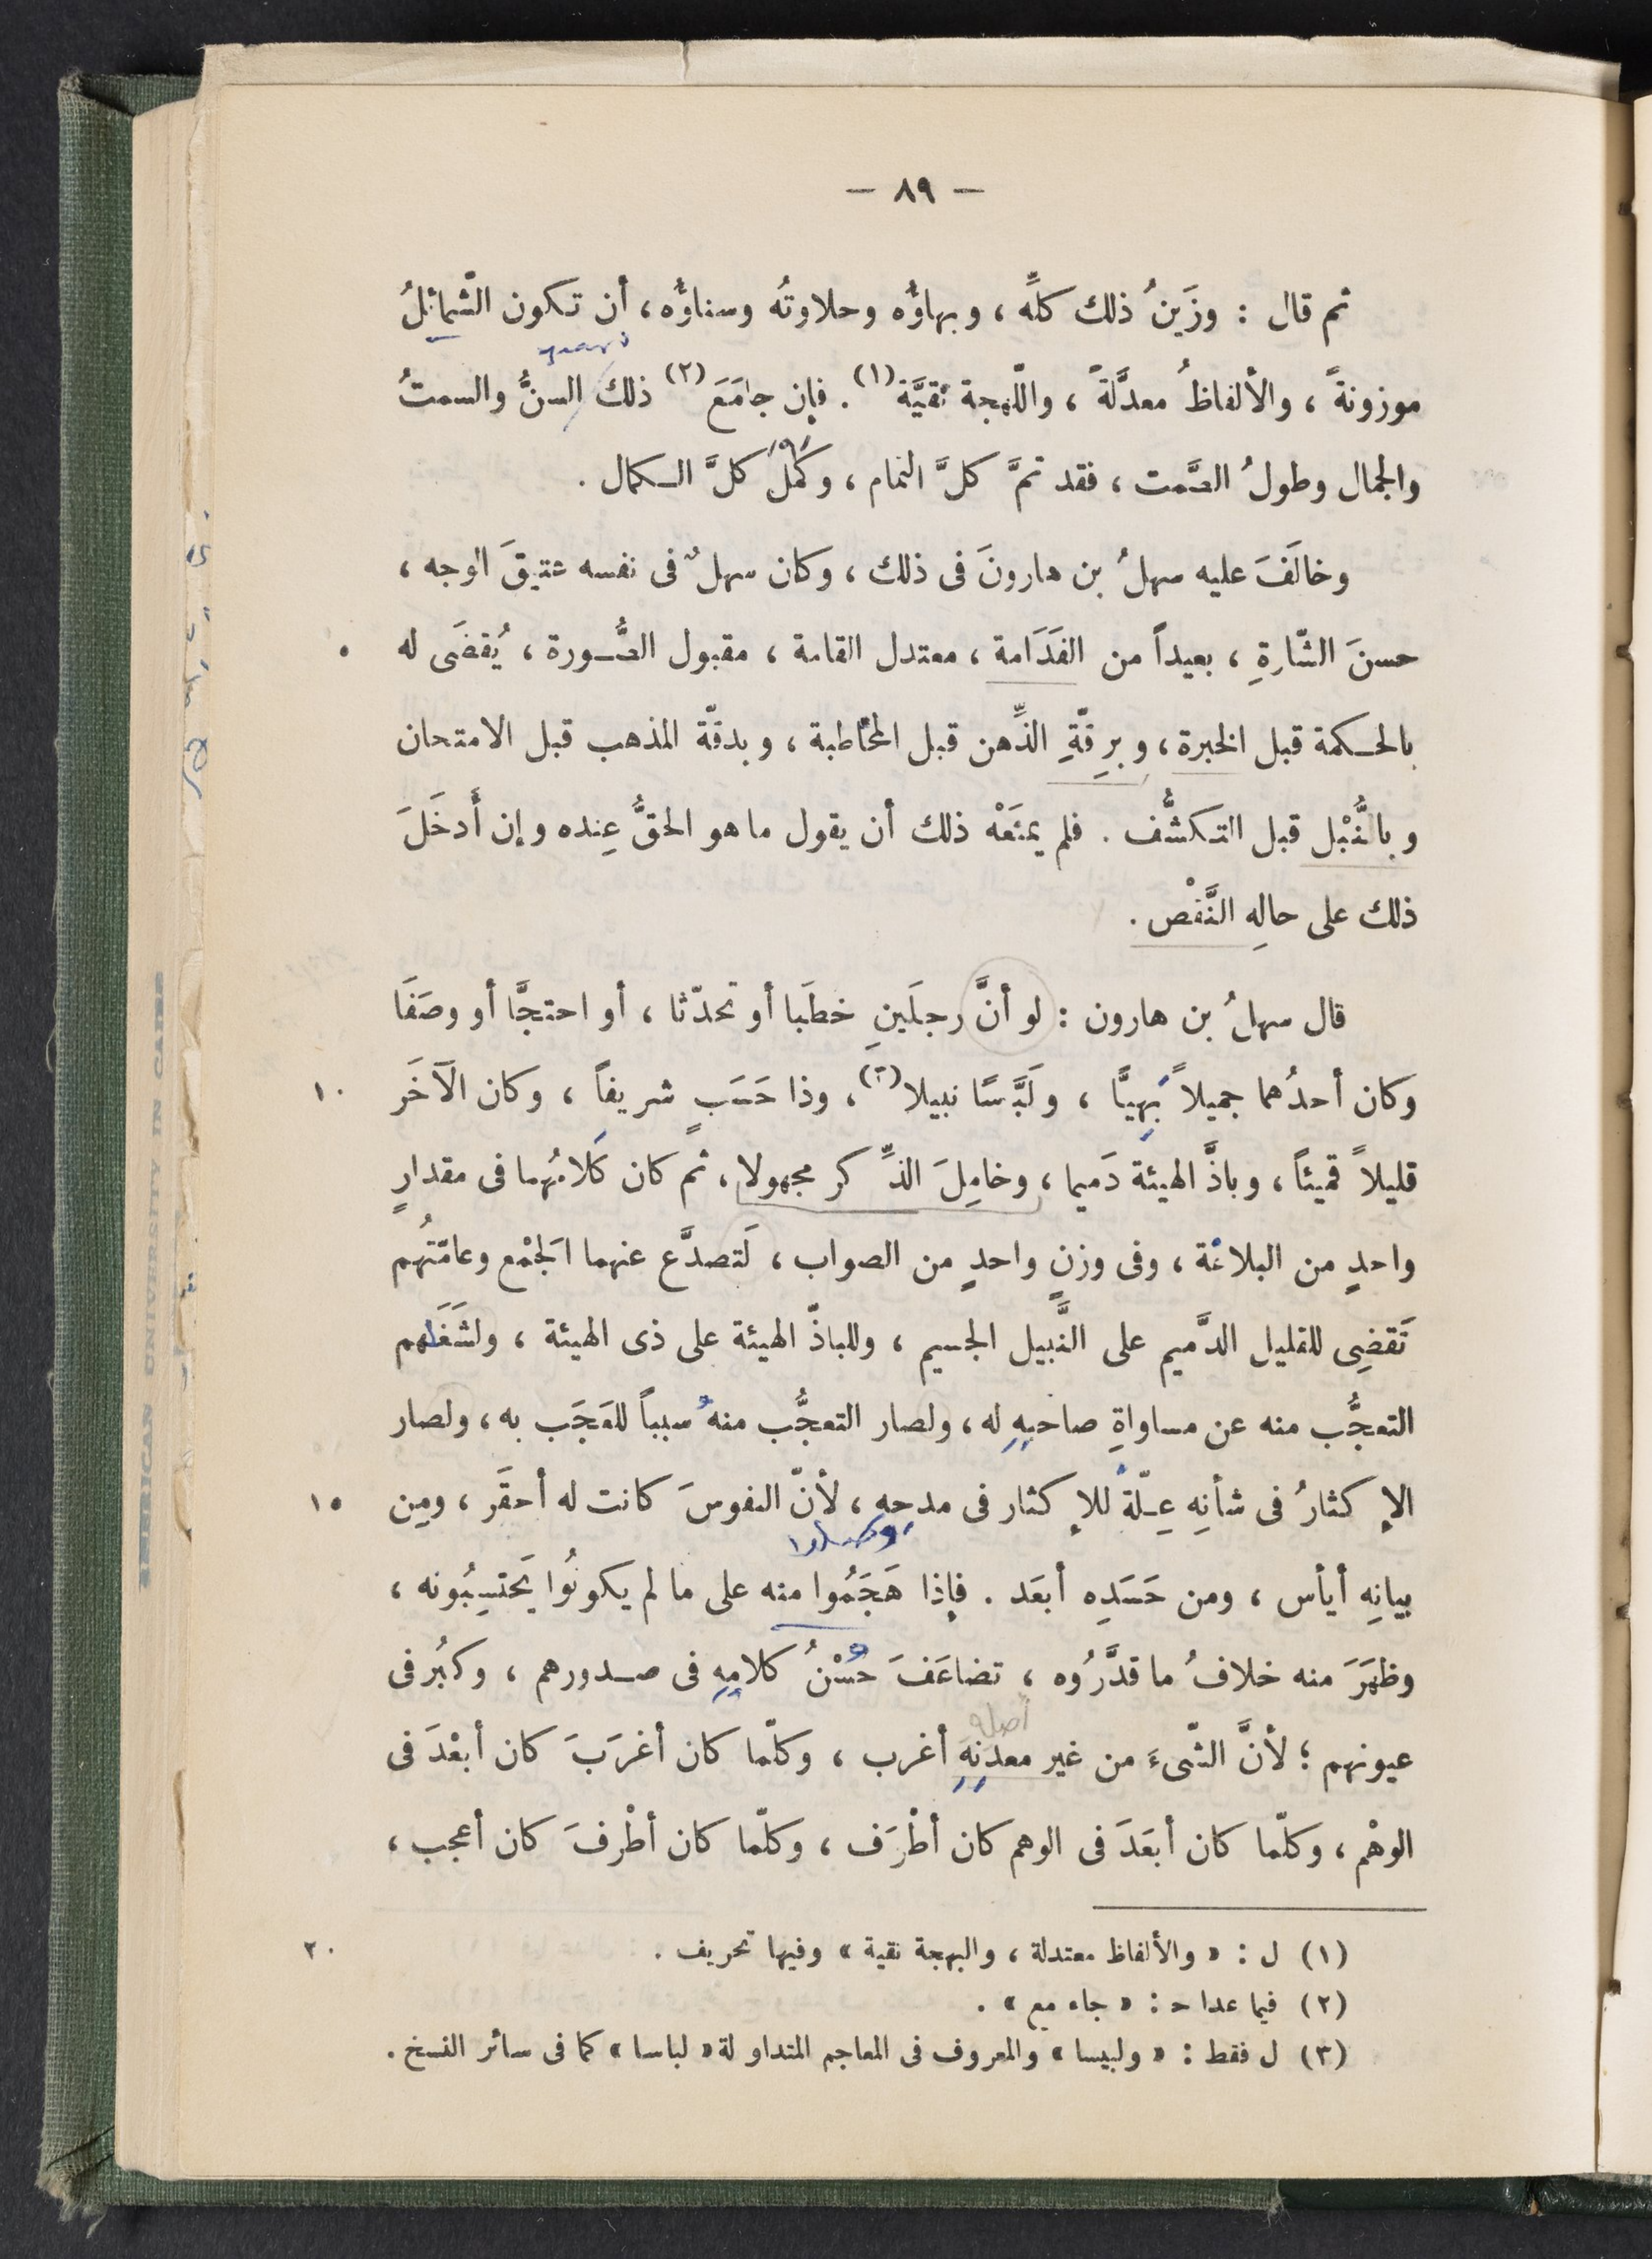 — ٨٩ —
ثم قال : وزَينُ ذلك كلِّه ، وبهاؤُه وحلاوتُه وسناؤُه ، أن تكون الشّمائلُ
موزونةً ، والألفاظُ معدَّلةً ، واللّهجة نقيَّة (١) . فإن جامَعَ (٢) ذلك السنُّ والسمتُ
والجمال وطولُ الصَّمت ، فقد تمَّ كلَّ التمام ، وكَمُلَ كلَّ الكمال .
وخالَفَ عليه سهلُ بن هارونَ فى ذلك ، وكان سهلٌ فى نفسه عتيقَ الوجه ،
حسنَ الشّارةِ ، بعيداً من الفَدَامة ، معتدل القامة ، مقبول الصُّورة ، يُقضَى له ٥
بالحكمة قبل الخبرة ، وبرِقّةِ الذِّهن قبل المخاطبة ، وبدقّة المذهب قبل الامتحان
وبالنُّبْل قبل التكشُّف . فلم يمنَعْه ذلك أن يقول ما هو الحقُّ عِنده وإن أَدخَلَ
ذلك على حالِه النَّقْص .
قال سهلُ بن هارون : لو أنَّ رجلَينِ خطَبا أو تحدّثا ، أو احتجَّا أو وصَفَا
وكان أحدُهما جميلاً بَهِيًّا ، ولَبَّاسًا نبيلا (٣) ، وذا حَسَبٍ شريفاً ، وكان الآخَر ١٠
قليلاً قميئاً ، وباذَّ الهيئة دَميما ، وخامِلَ الذِّكر مجهولا ، ثم كان كَلامُهما فى مقدارٍ
واحدٍ من البلاغة ، وفى وزنٍ واحدٍ من الصواب ، لَتصدَّع عنهما الجَمْع وعامّتُهم
تَقضِى للقليل الدَّميم على النَّبيل الجسيم ، وللباذّ الهيئة على ذى الهيئة ، ولشَغَلهم
التعجُّب منه عن مساواةِ صاحبِهِ له ، ولصار التعجُّب منهُ سبباً للعَجَب به ، ولصار
الإكثارُ فى شأنِهِ عِلّةً للإكثار فى مدحِهِ ، لأنّ النفوسَ كانت له أحقَر ، ومِن ١٥
بيانِه أيأس ، ومن حَسَدِه أبعَد . فإذا هَجَمُوا منه على ما لم يكونُوا يَحتسِبُونه ،
وظهَرَ منه خلافُ ما قدَّرُوه ، تضاعَفَ حُسْنُ كلامِهِ فى صدورهم ، وكبُر فى
أصله
عيونهم ؛ لأنَّ الشّىءَ من غير معدِنِهِ أغرب ، وكلّما كان أغرَبَ كان أبعْدَ فى
الوهْم ، وكلّما كان أبعَدَ فى الوهم كان أطْرَف ، وكلّما كان أطْرفَ كان أعجب ،
(١) ل : « والألفاظ معتدلة ، والبهجة نقية » وفيها تحريف . ٢٠
(٢) فيما عدا ح : « جاء مع » .
(٣) ل فقط : « ولبيسا » والمعروف فى المعاجم المتداولة « لباسا » كما فى سائر النسخ .